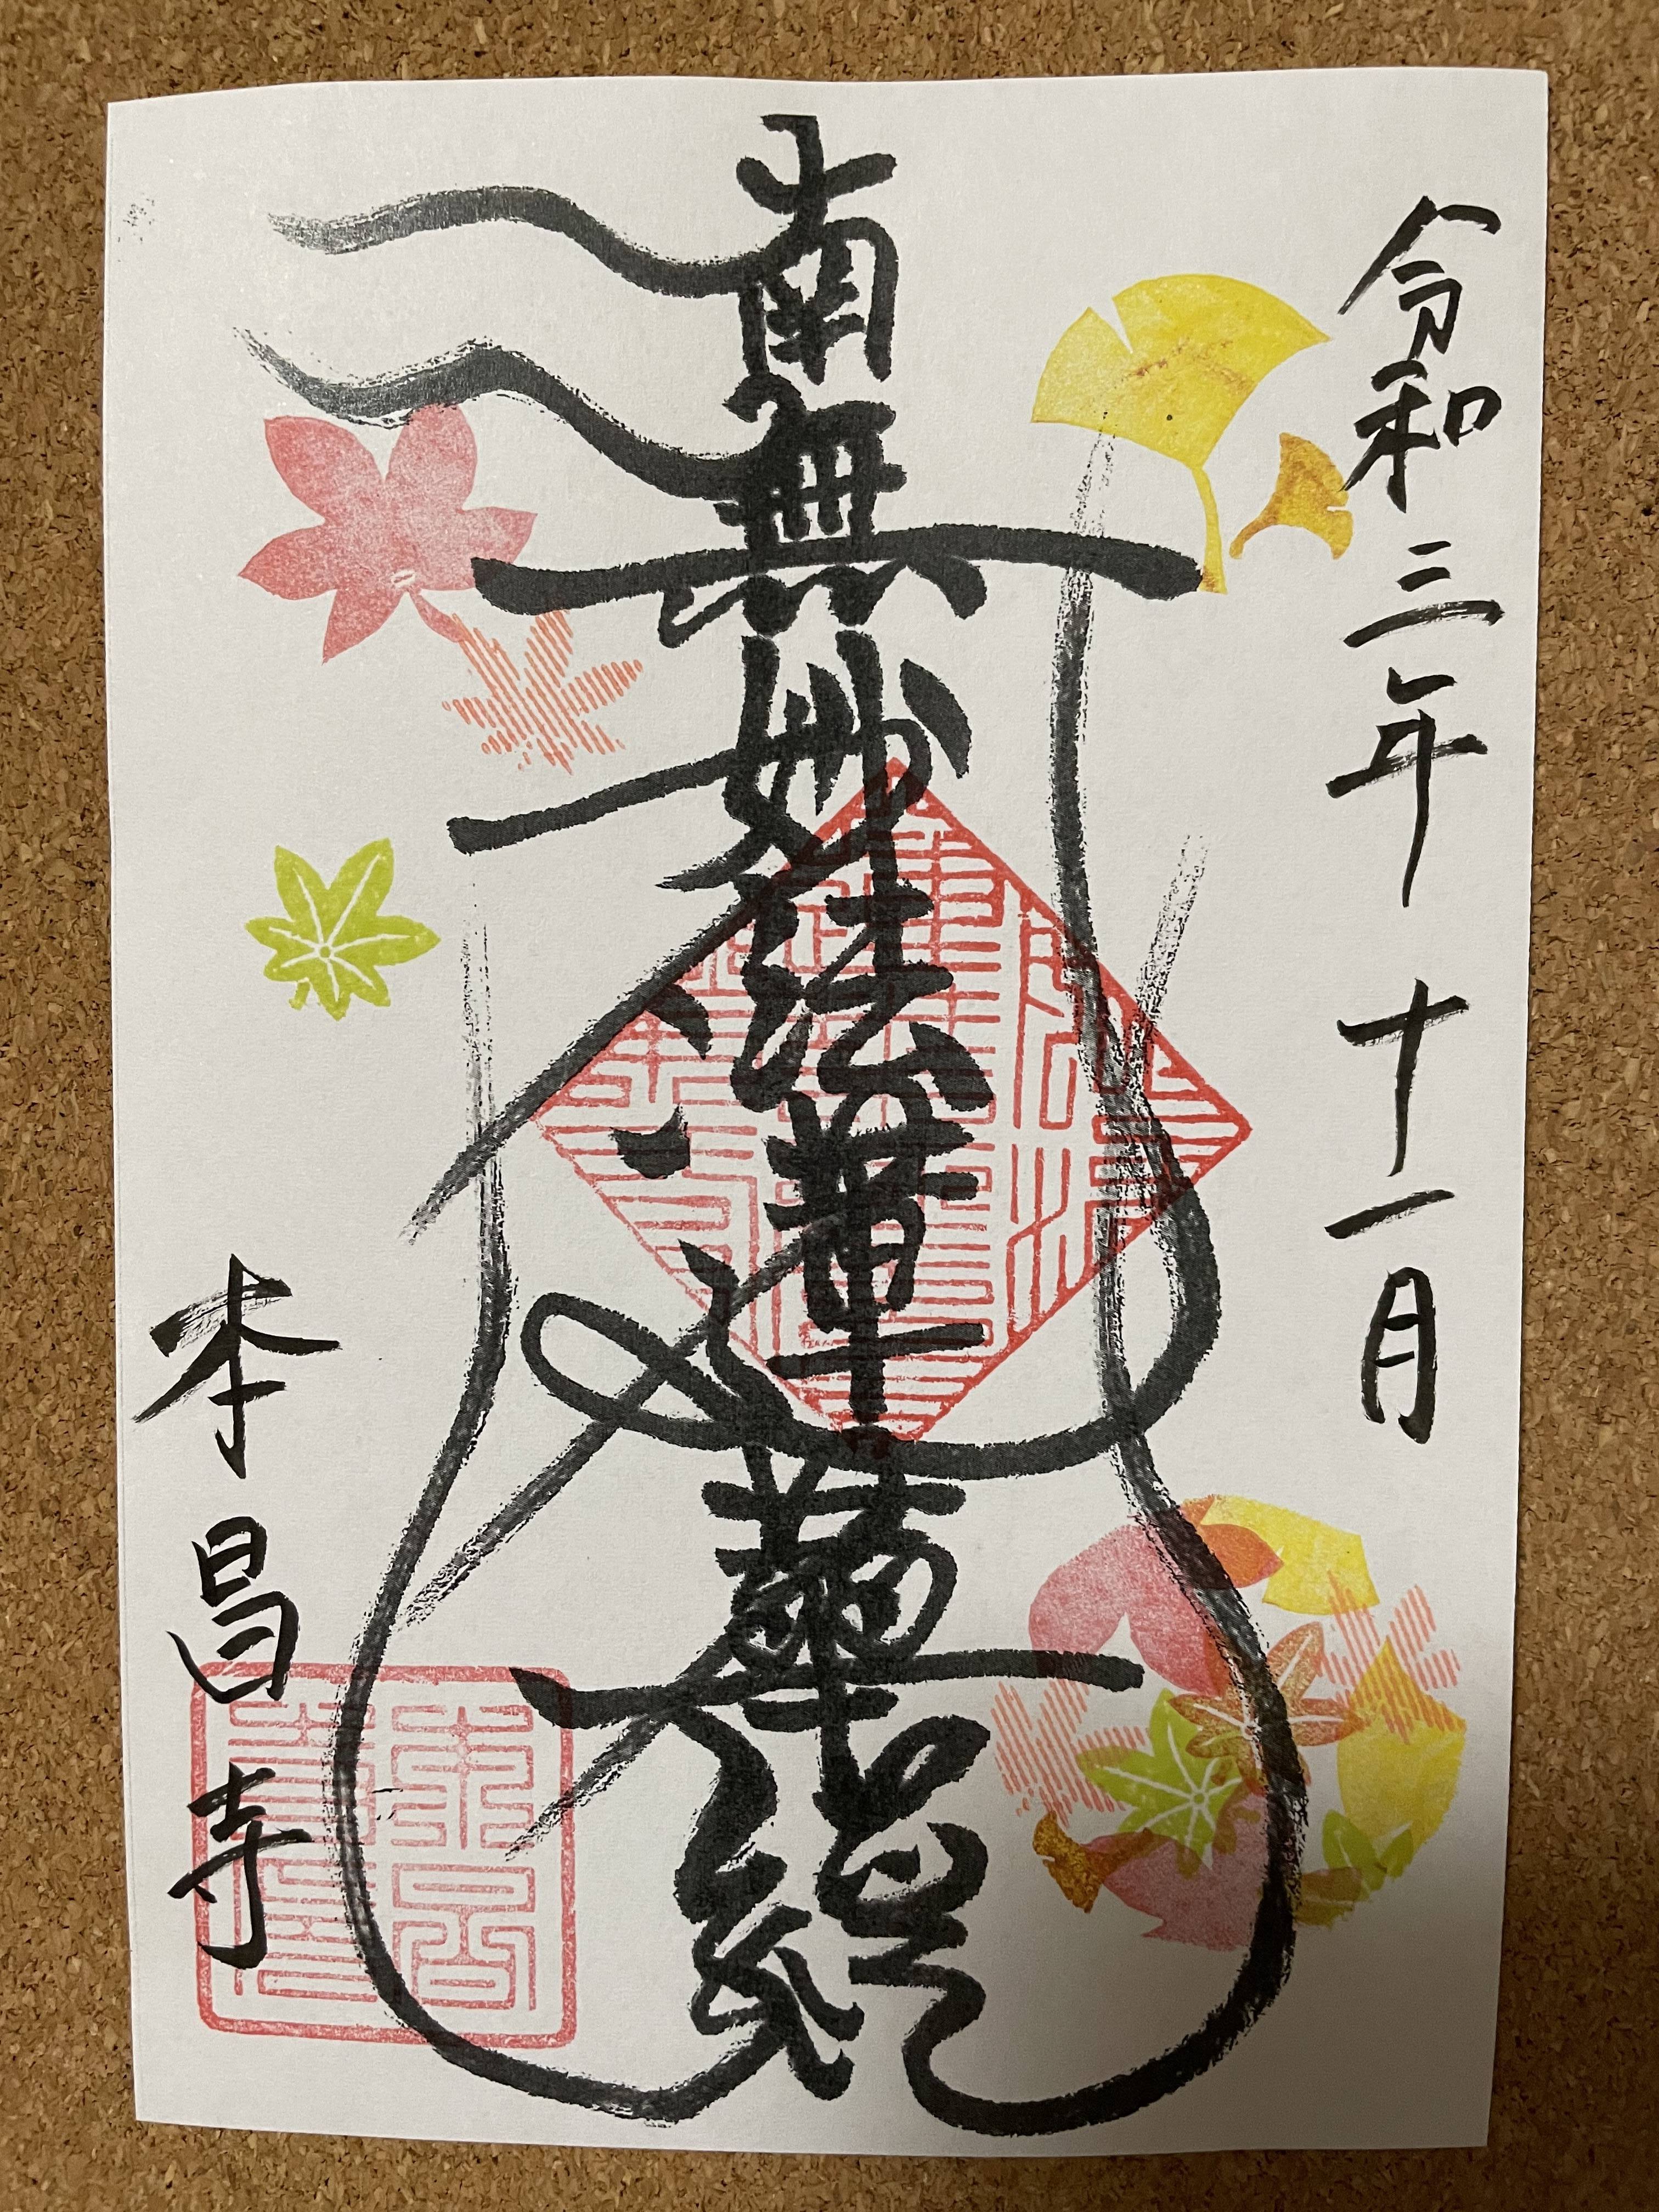 令和三年十一月
南無妙法蓮華経
本昌寺